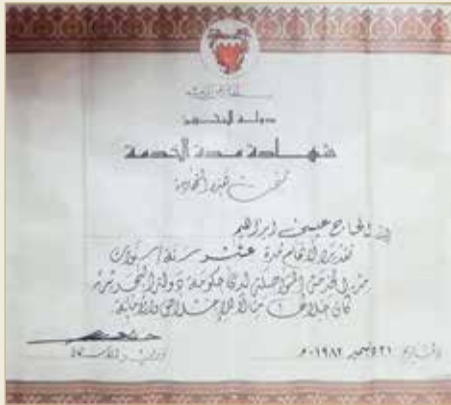 دولة البحرين
شهادة مدة الخدمة
منحت هذه الشهادة
إلى الحاج عيسى ابراهيم
تقديرا لإتمام مدة عشر سنوات
من الخدمة المتواصلة لدى حكومة دولة البحرين
كان خلالها مثالا للإخلاص والأمانة
٢١ ديسمبر ١٩٨٢م